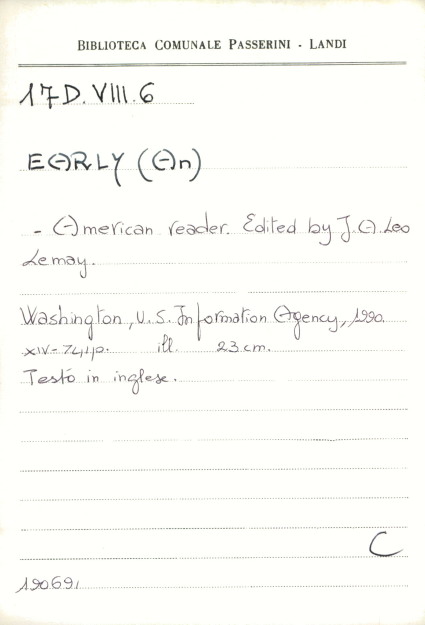 BIBLIOTECA COMUNALE PASSERINI - LANDI
17D.VIII.6
EARLY (An)
- American reader. Edited by J.A. Leo
Lemay.
Washington, U.S. Information Agency, 1990.
XIV-741p. ill. 23 cm.
Testo in inglese.
C
190691